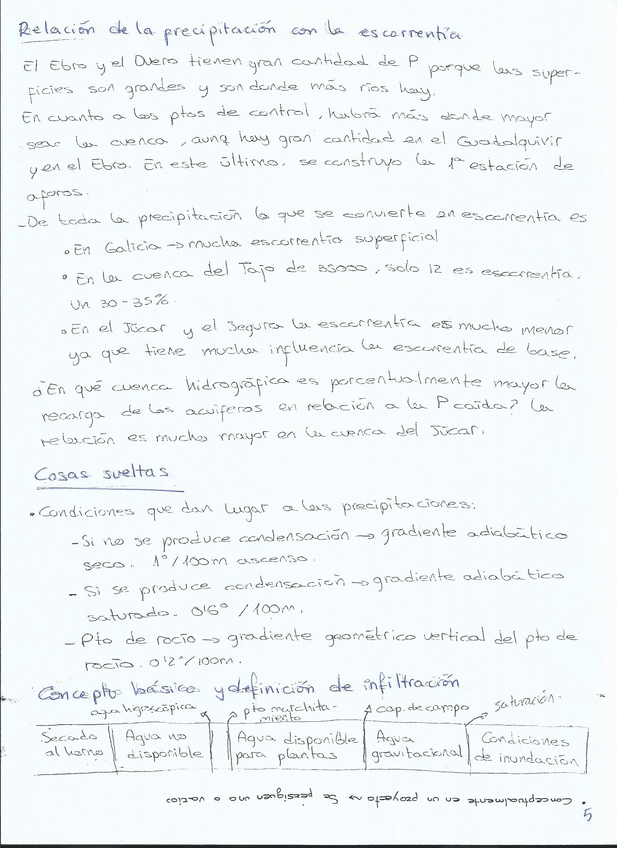 Relación de la precipitación con la escorrentía
El Ebro y el Duero tienen gran cantidad de P porque las super-
ficies son grandes y son donde más ríos hay.
En cuanto a los ptos de control, habrá más donde mayor
sea la cuenca, aunq hay gran cantidad en el Guadalquivir
y en el Ebro. En este último, se construyo la 1ª estación de
aforos.
- De toda la precipitación la que se convierte en escorrentía es
• En Galicia → mucha escorrentía superficial
• En la cuenca del Tajo de 35000, solo 12 es escorrentía.
Un 30-35%.
• En el Júcar y el Segura la escorrentía es mucho menor
ya que tiene mucha influencia la escorrentía de base.
¿En qué cuenca hidrográfica es porcentualmente mayor la
recarga de los acuíferos en relación a la P caída? La
relación es mucho mayor en la cuenca del Júcar.
Cosas sueltas
• Condiciones que dan lugar a las precipitaciones:
- Si no se produce condensación → gradiente adiabático
seco. 1º/100m ascenso.
- Si se produce condensación → gradiente adiabático
saturado. 0'6º/100m.
- Pto de rocío → gradiente geométrico vertical del pto de
rocío. 0'2º/100m.
Concepto básico y definición de infiltración
agua higroscópica pto marchita- cap. de campo saturación.
miento
Secado Agua no Agua disponible Agua Condiciones
al horno disponible para plantas gravitacional de inundación
• Conceptualmente en un proyecto → Se persiguen uno o varios
5